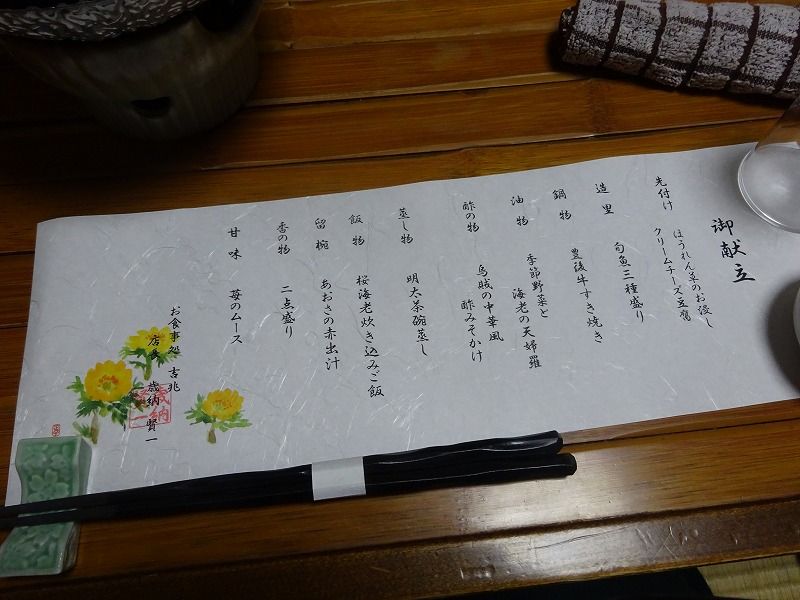 御献立
先付け ほうれん草のお浸し
クリームチーズ豆腐
造里 旬魚三種盛り
鍋物 豊後牛すき焼き
油物 季節野菜と
海老の天婦羅
酢の物 烏賊の中華風
酢みそかけ
蒸し物 明太茶碗蒸し
飯物 桜海老炊き込みご飯
留椀 あおさの赤出汁
香の物 二点盛り
甘味 苺のムース
お食事処 吉兆
店長 歳納 賢一